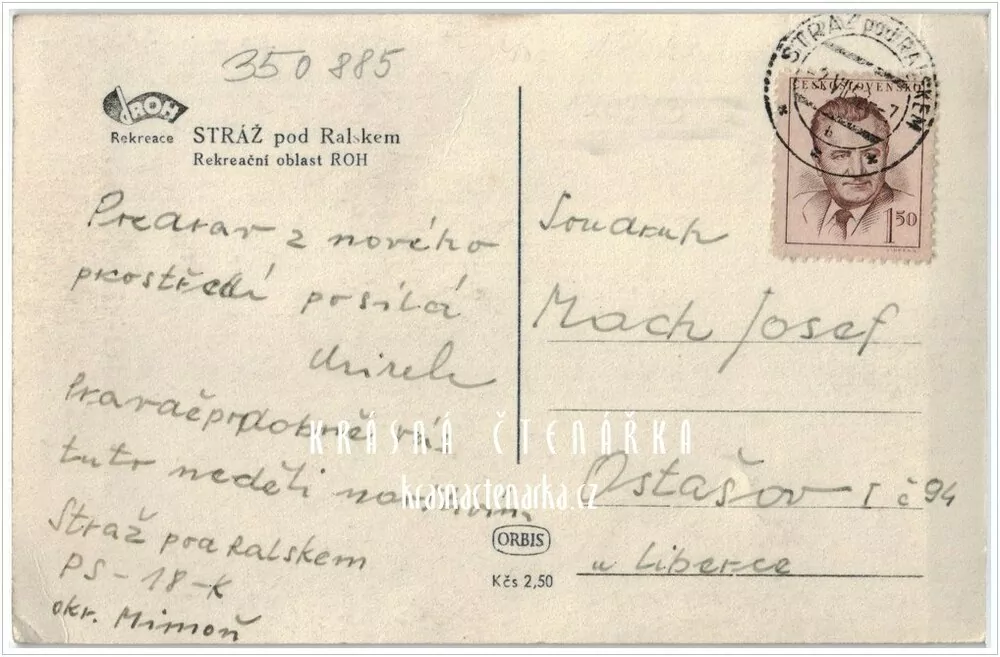 350 885
ROH
Rekreace
STRÁŽ pod Ralskem
Rekreační oblast ROH
Pozdrav z nového
prostředí posílá
Mirek
Pravděpodobně vás
tuto neděli navštívím
Stráž pod Ralskem
PS-18-K
okr. Mimoň
STRÁŽ pod RALSKEM
ČESKOSLOVENSKO
1 50
Soudruh
Mach Josef
Ostašov I č 94
u Liberce
KRÁSNÁ ČTENÁŘKA
krasnactenarka.cz
ORBIS
Kčs 2,50